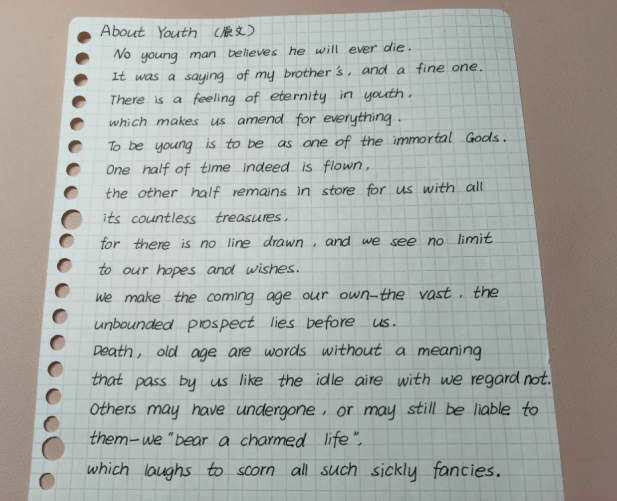 About Youth (原文)
No young man believes he will ever die.
It was a saying of my brother's, and a fine one.
There is a feeling of eternity in youth,
which makes us amend for everything.
To be young is to be as one of the immortal Gods.
One half of time indeed is flown,
the other half remains in store for us with all
its countless treasures,
for there is no line drawn, and we see no limit
to our hopes and wishes.
we make the coming age our own-the vast, the
unbounded prospect lies before us.
Death, old age are words without a meaning
that pass by us like the idle aire with we regard not.
Others may have undergone, or may still be liable to
them-we "bear a charmed life",
which laughs to scorn all such sickly fancies.